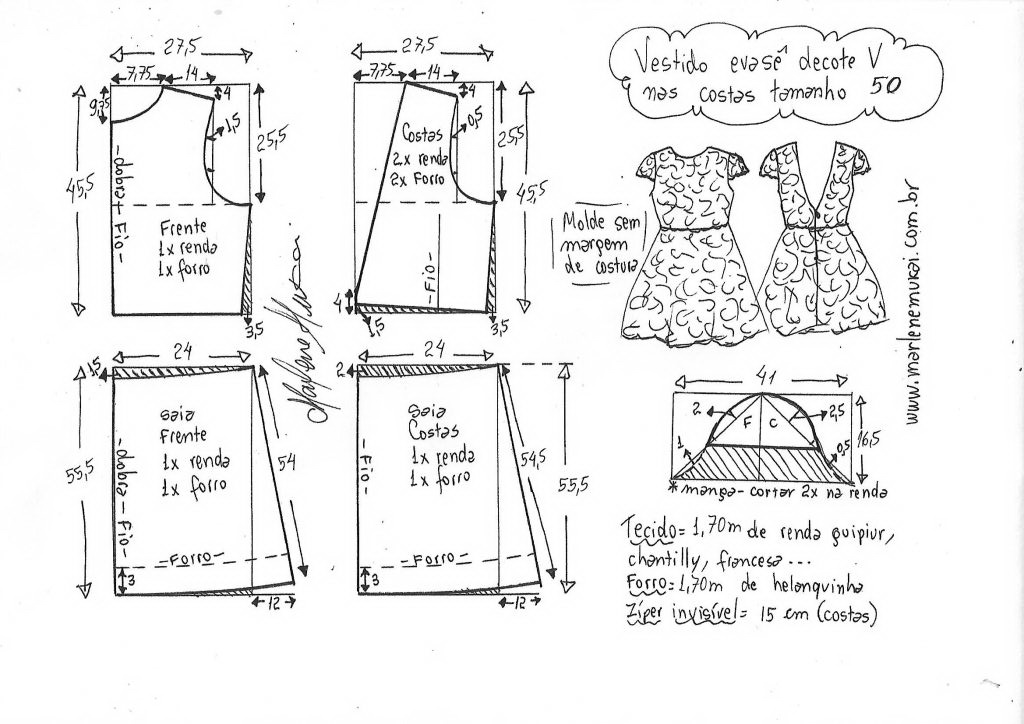 Vestido evasê decote V
nas costas tamanho 50
27,5
7,75
14
4
9,75
1,5
25,5
45,5
-dobra+Fio-
Frente
1x renda
1x forro
3,5
27,5
7,75
14
4
0,5
Costas
2x renda
2x Forro
25,5
45,5
-Fio-
4
1,5
3,5
Molde sem
margem
de costura
www.marlenemukai.com.br
24
1,5
55,5
saia
Frente
1x renda
1x forro
-dobra-Fio-
54
-Forro-
3
12
24
2
saia
Costas
1x renda
1x forro
-Fio-
54,5
55,5
-Forro-
3
12
41
2
F
C
2,5
1
0,5
16,5
* manga- cortar 2x na renda
Tecido= 1,70m de renda guipiur,
chantilly, francesa ...
Forro=1,70m de helanquinha
Zíper invisível= 15 cm (costas)